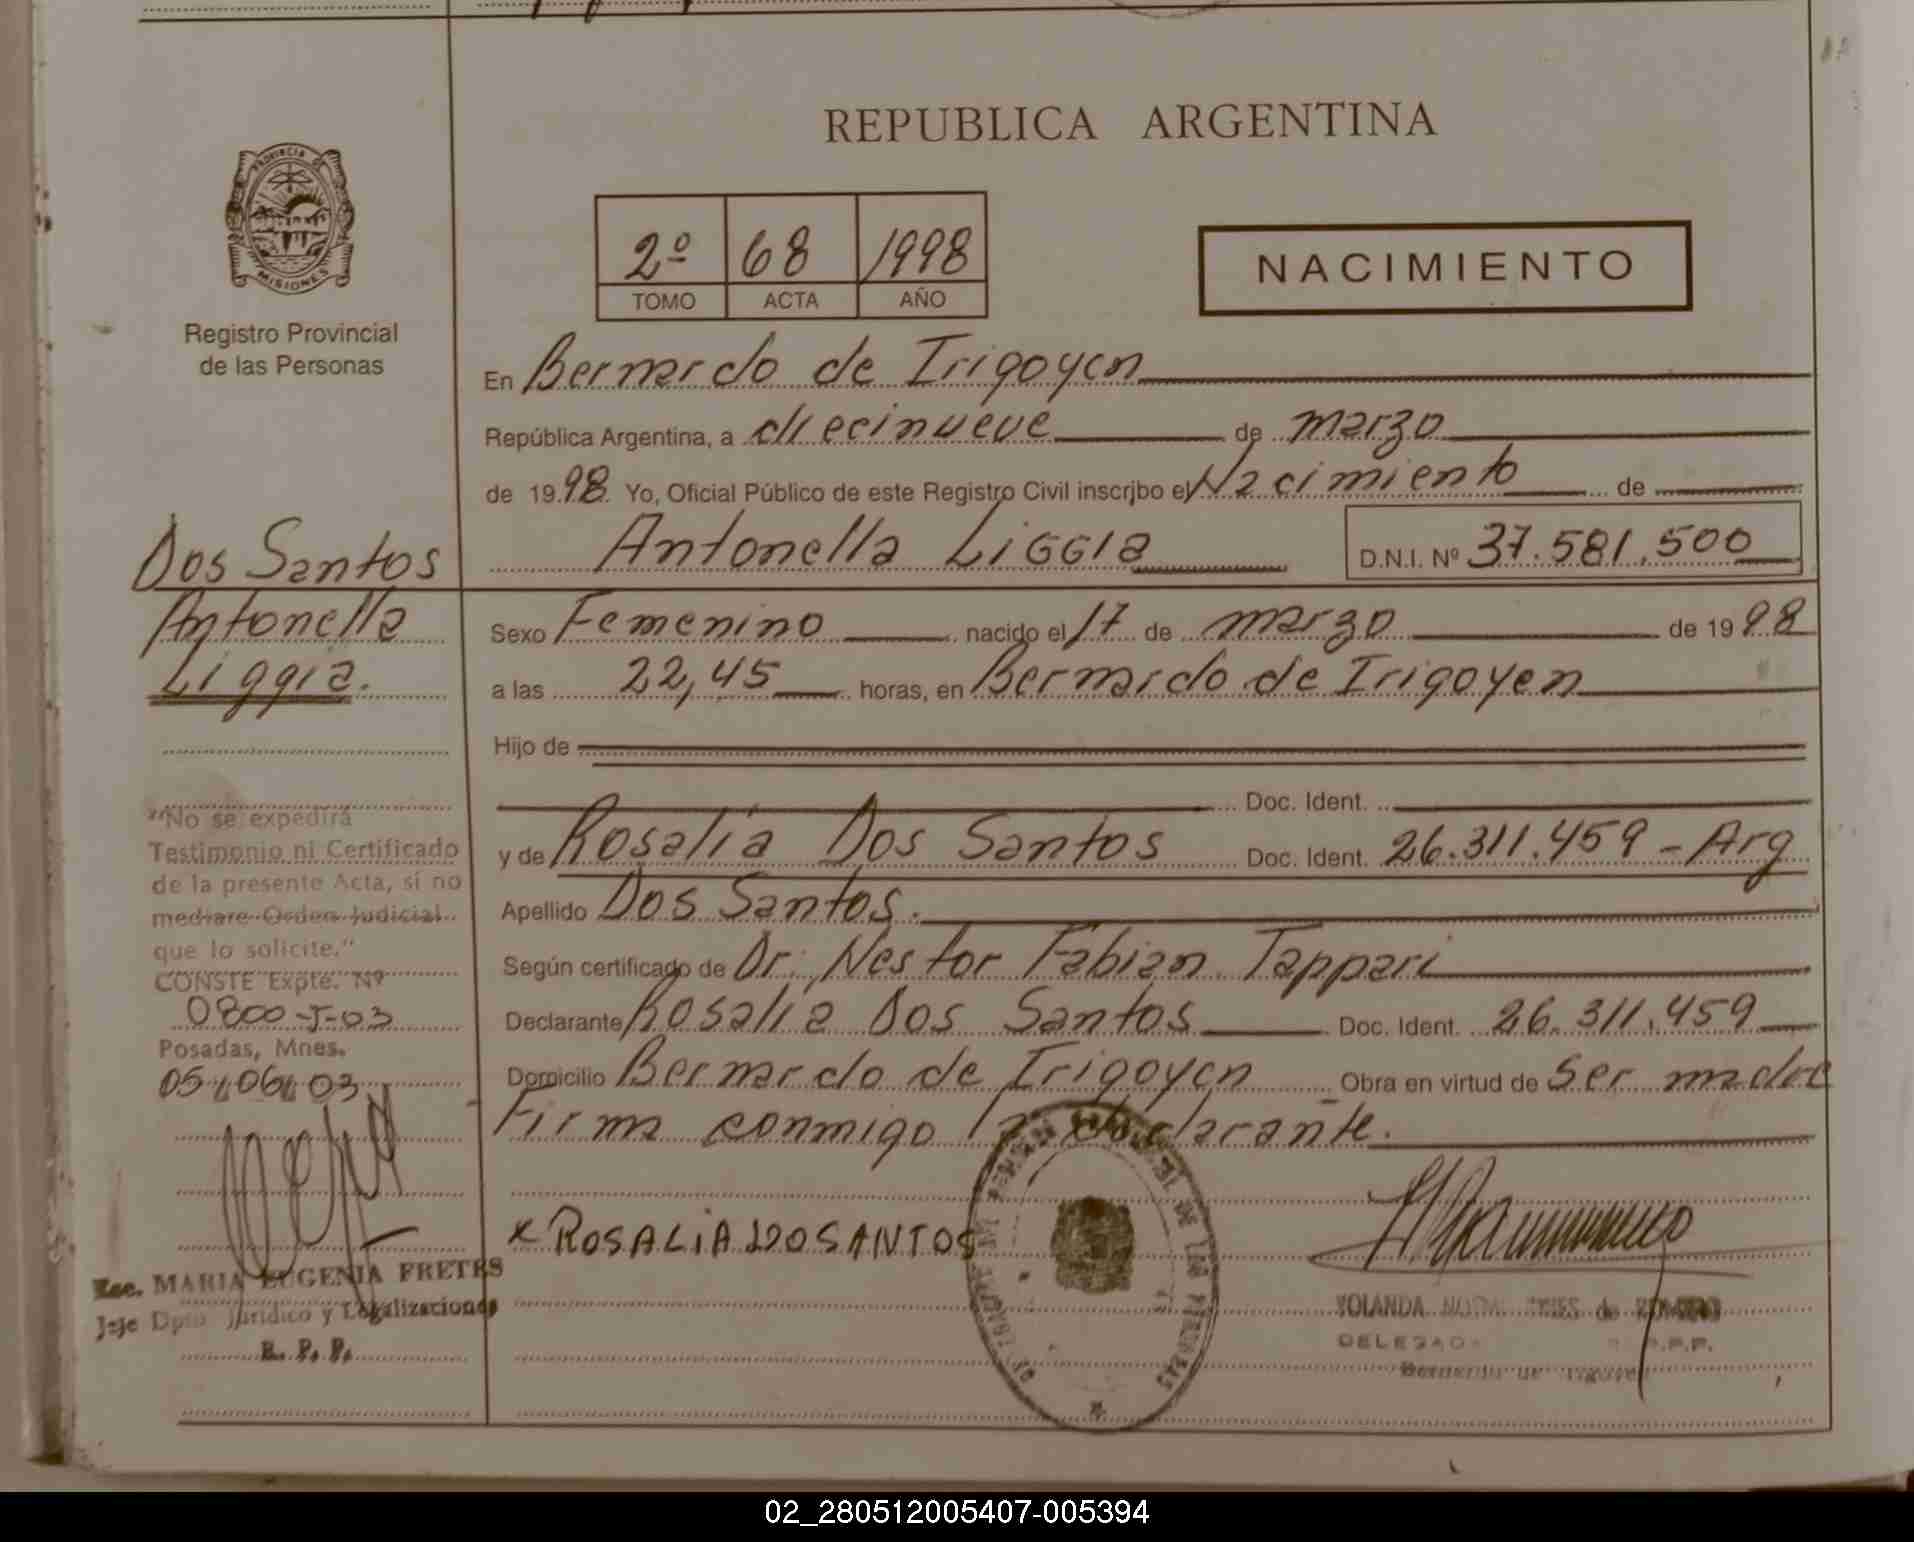 REPUBLICA ARGENTINA
PROVINCIA DE
MISIONES
Registro Provincial
de las Personas
2º 68 1998
TOMO ACTA AÑO
NACIMIENTO
En Bernardo de Irigoyen
República Argentina, a diecinueve de marzo
de 1998. Yo, Oficial Público de este Registro Civil inscribo el Nacimiento de
Antonella LiGGia
D.N.I. Nº 37.581.500
Dos Santos
Antonella
Liggia.
Sexo Femenino nacido el 17 de marzo de 1998
a las 22,45 horas, en Bernardo de Irigoyen
Hijo de
Doc. Ident.
y de Rosalía Dos Santos Doc. Ident. 26.311.459 - Arg
Apellido Dos Santos.
Según certificado de Dr. Nestor Fabian Tappari
Declarante Rosalía Dos Santos Doc. Ident. 26.311.459
Domicilio Bernardo de Irigoyen Obra en virtud de Ser madre
Firma conmigo la declarante.
"No se expedirá
Testimonio ni Certificado
de la presente Acta, si no
mediare Orden Judicial
que lo solicite."
CONSTE Expte. Nº
0800-J-03
Posadas, Mnes.
05/06/03
x ROSALiA DO SANTOS
Esc. MARIA EUGENIA FRETES
Jefe Dpto Jurídico y Legalizaciones
R. P. P.
YOLANDA de ROMERO
DELEGADA R.P.P.
Bernardo de Irigoyen
02_280512005407-005394